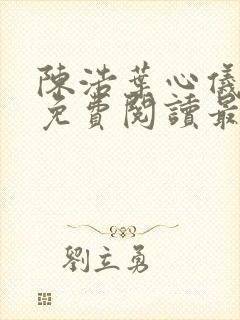 陳浩葉心儀
免費閱讀最
劉立勇